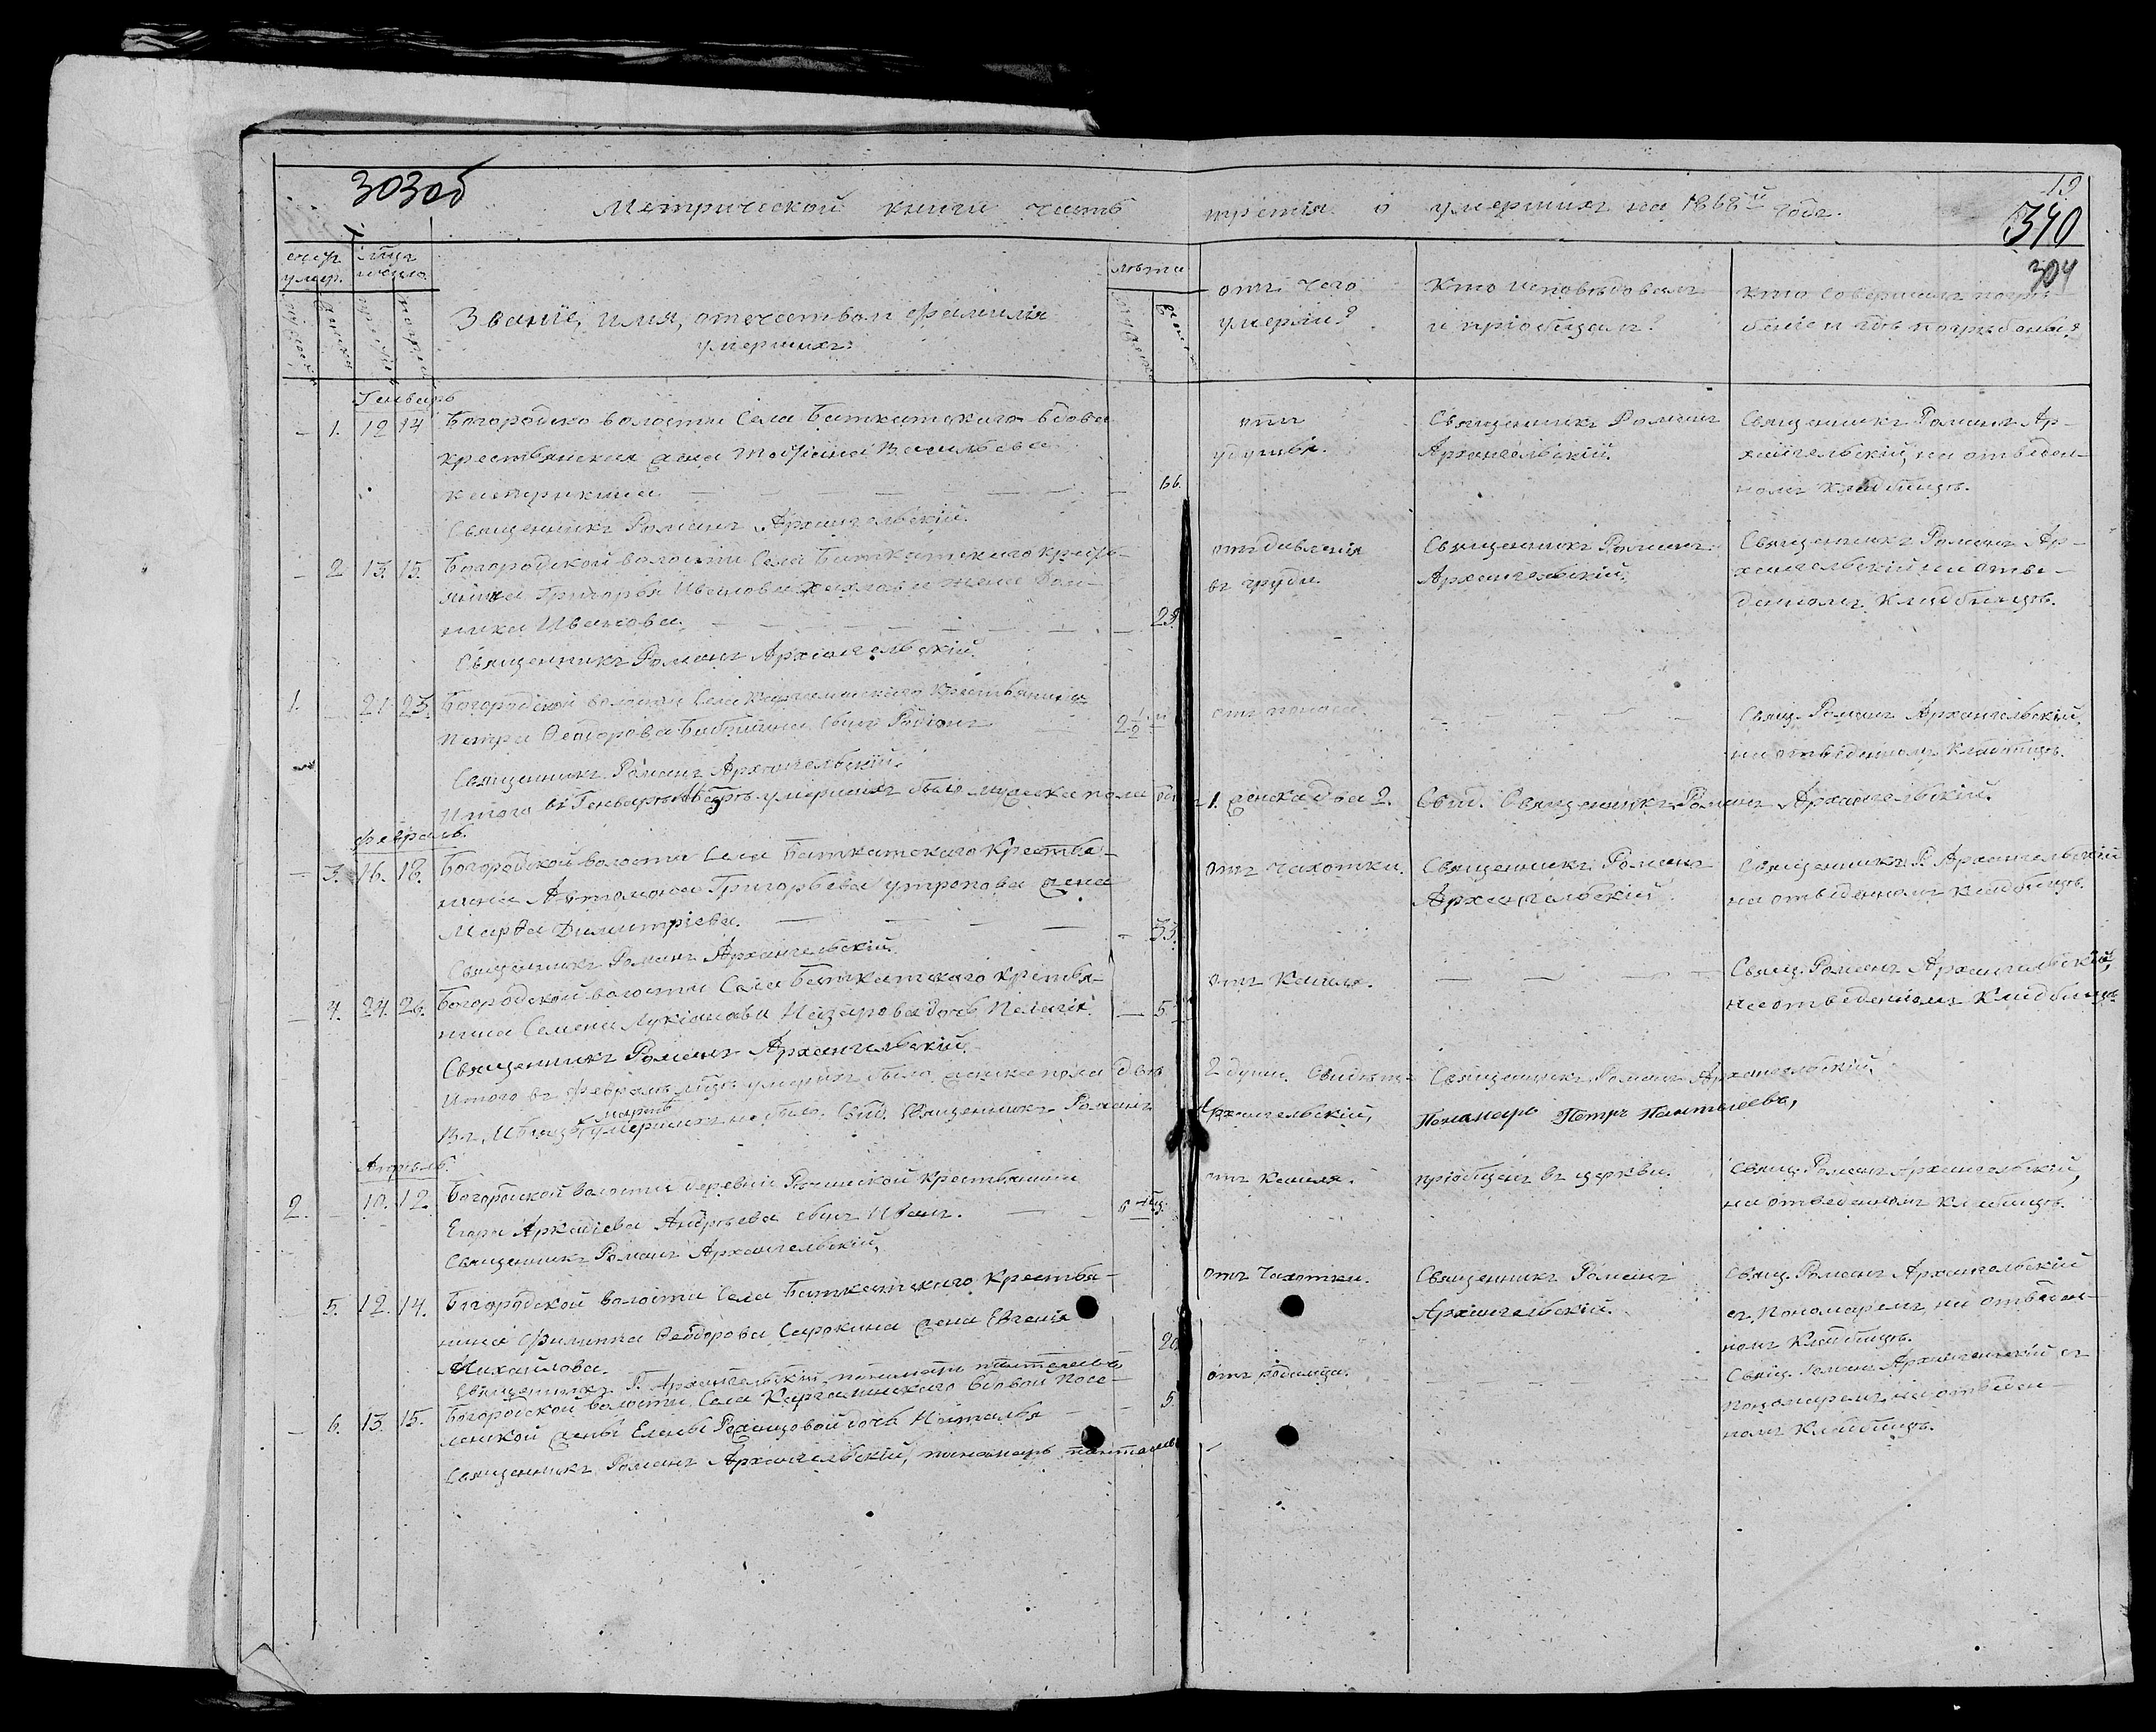 303об
Метрической книги часть третія о умершихъ на 1868й годъ.
19
340
304
счетъ умер.
мѣсяцъ и число
Званіе, имя, отечество и фамилія
умершихъ.
лѣта
отъ чего
умерли?
Кто исповѣдовалъ
и пріобщалъ?
Кто совершалъ погре-
беніе и гдѣ погребены?
Генварь
- 1. 12 14 Богородско волости Села Баткатскаго вдова
крестьянская жена Татіана Васильева
66.
отъ
удушья.
Священникъ Романъ
Архангельскій.
Священникъ Романъ Ар-
хангельскій, на отведен-
номъ кладбищѣ.
Священникъ Романъ Архангельскій.
- 2 13. 15. Богородской волости Села Баткатскаго кресть-
янина Григорья Иванова жена Дом-
ника Иванова.
23.
отъ давленія
въ груди.
Священникъ Романъ
Архангельскій.
Священникъ Романъ Ар-
хангельскій на отве-
денномъ кладбищѣ.
Священникъ Романъ Архангельскій.
1. - 21. 23. Богородской волости Села Каргалинскаго Крестьянина
Петра Ѳеодорова сынъ Родіонъ
2 1/2
отъ поноса.
Свящ. Романъ Архангельскій,
на отведенномъ кладбищѣ.
Священникъ Романъ Архангельскій.
Итого въ Генварѣ мѣсяцѣ умершихъ было мужеска пола одинъ 1. женска два 2. Свид. Священникъ Романъ Архангельскій.
Февраль.
- 3. 16. 18. Богородской волости Села Баткатскаго Крестья-
нина Автомона Григорьева Утропова жена
Марѳа Димитріева.
33.
отъ чахотки.
Священникъ Романъ
Архангельскій
Священникъ Р. Архангельскій
на отведенномъ кладбищѣ.
Священникъ Романъ Архангельскій.
- 4. 24. 26. Богородской волости Села Баткатскаго крестья-
нина Семена Лукіанова Назарова дочь Пелагія.
- 5
отъ Кашля.
Свящ. Романъ Архангельскій,
на отведенномъ Кладбищѣ.
Священникъ Романъ Архангельскій.
Итого въ Февралѣ мцѣ умершихъ было женска пола двѣ 2 души. Свидѣт. Священникъ Романъ Архангельскій,
Въ Мартѣ мѣсяцѣ умершихъ не было. Свид. Священникъ Романъ Архангельскій, Пономарь Петръ Пантелеевъ,
Апрѣль.
2. - 10. 12. Богородской волости деревни Крестьянина
Егора Аркадіева Андреева сынъ Иванъ.
6 мц.
отъ Кашля.
пріобщенъ въ церкви.
Свящ. Романъ Архангельскій,
на отведенномъ кладбищѣ.
Священникъ Романъ Архангельскій,
5. 12. 14. Богородской волости Села Баткатскаго Крестья-
нина Филиппа Ѳеодорова Сорокина жена Евгенія
Михайлова.
20
отъ Чахотки.
Священникъ Романъ
Архангельскій.
Свящ. Романъ Архангельскій
съ Пономаремъ, на отведен-
номъ Кладбищѣ.
Священникъ Р. Архангельскій, пономарь Пантелеевъ
- 6. 13. 15. Богородской волости, Села Каргалинскаго вдовой посе-
ленской жены Елены дочь Наталья
5
отъ родимца.
Свящ. Романъ Архангельскій съ
Пономаремъ, на отведен-
номъ Кладбищѣ.
Священникъ Романъ Архангельскій, пономарь Пантелеевъ